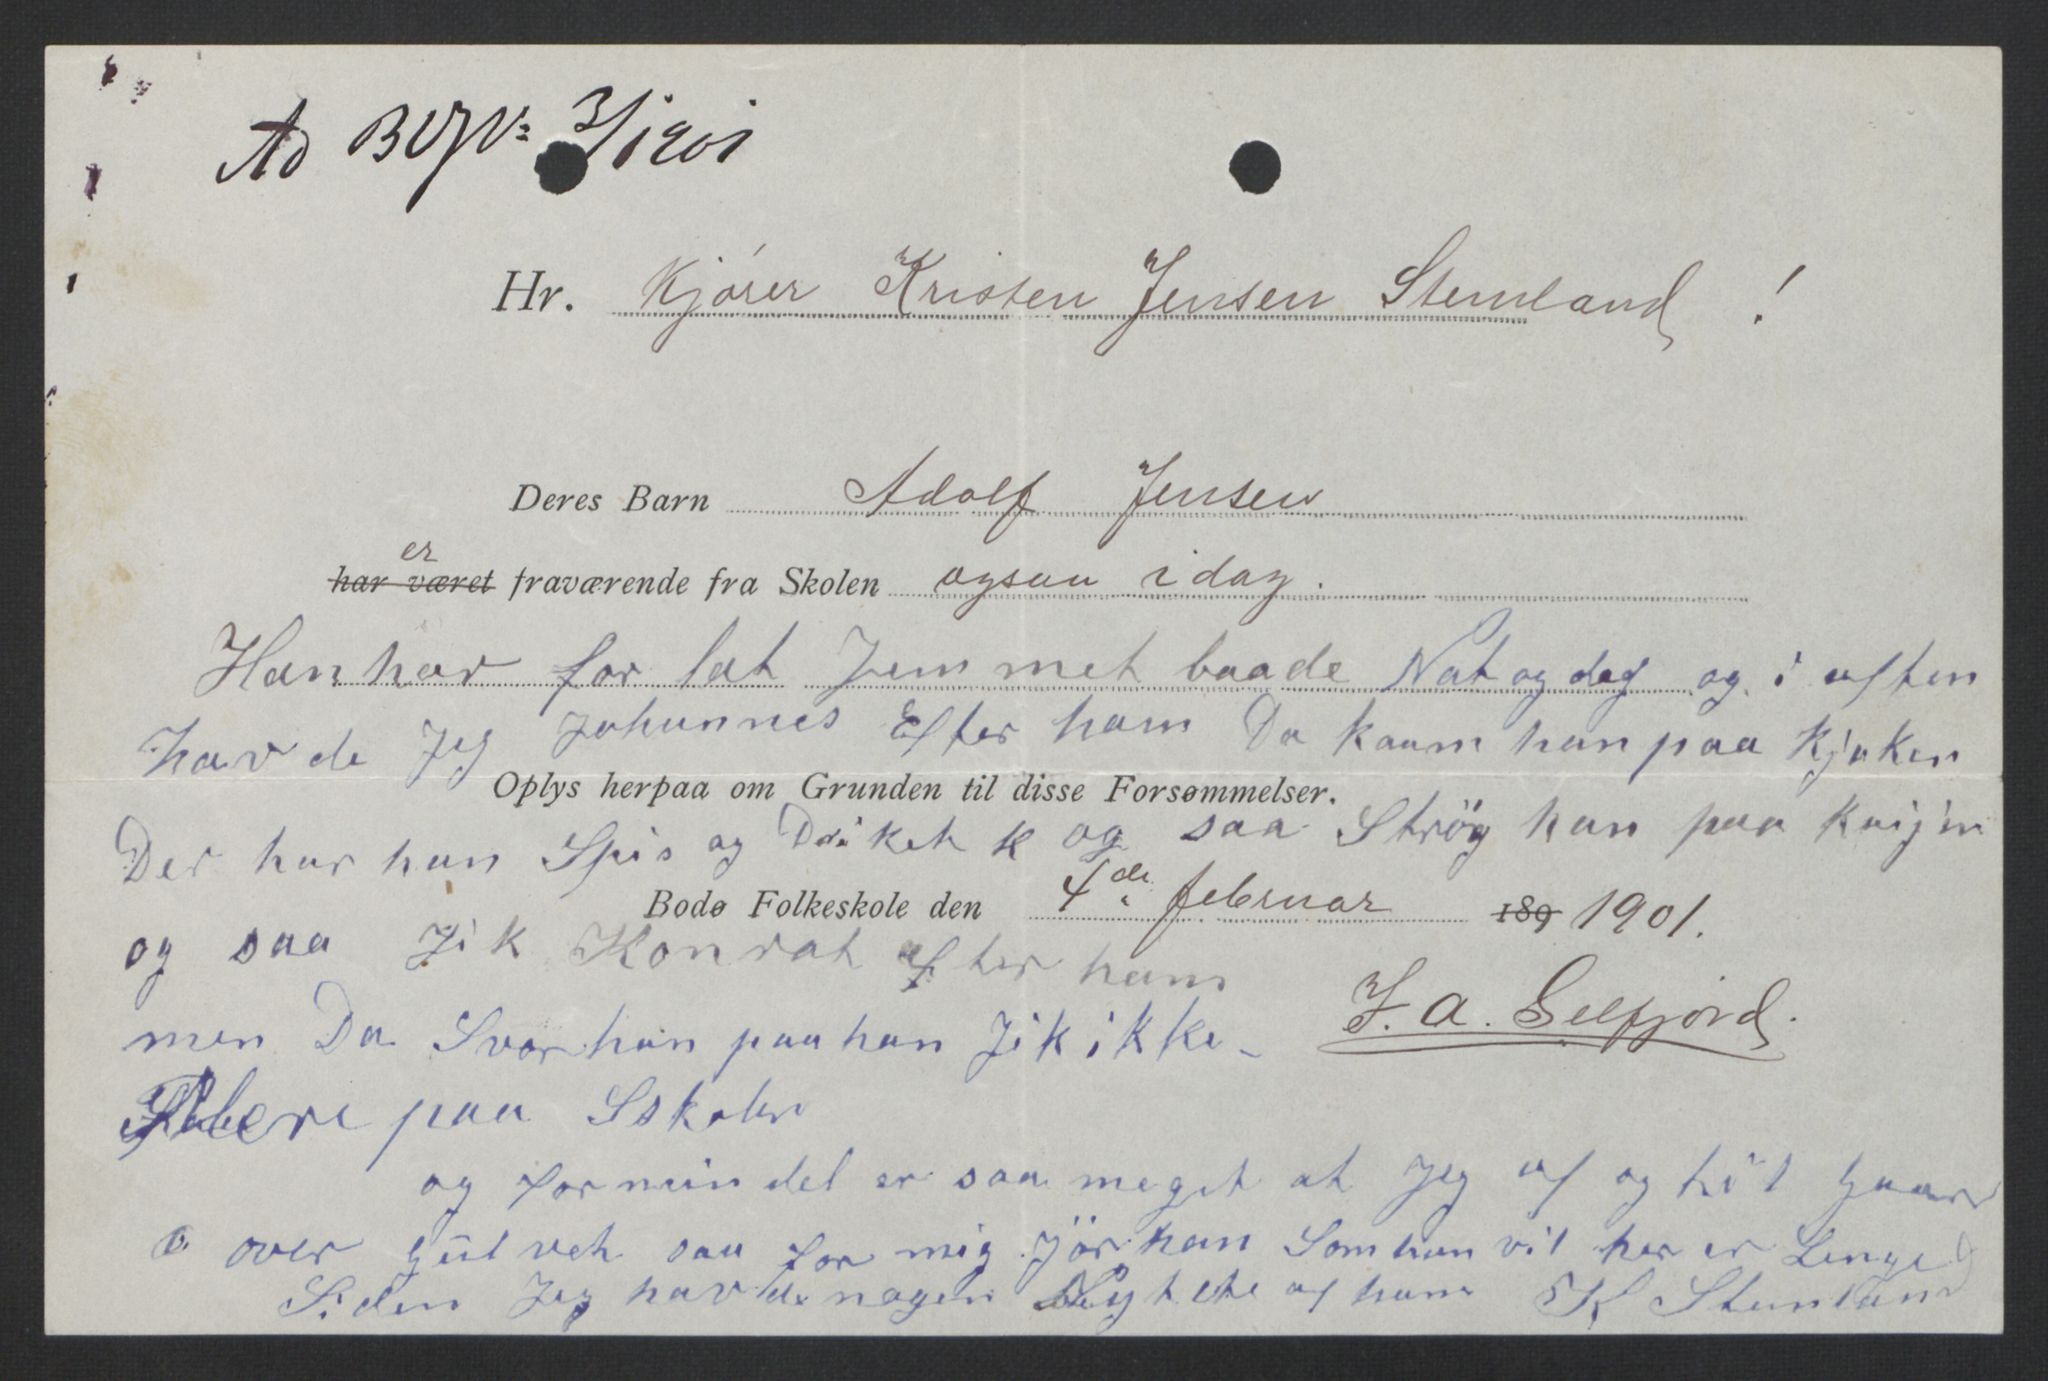 Ad 3/1901
Hr. Kjører Kristen Jensen Stemland !
Deres Barn Adolf Jensen
er
har været fraværende fra Skolen ogsaa idag.
Han har for lat Jem met baade Nat og dag og i aften
hav de Jeg Johannes Efter ham Da kaam han paa Kjøken
Oplys herpaa om Grunden til disse Forsømmelser.
Der har han Spis og Driket og saa Strög han paa kaijen
Bodø Folkeskole den 4de februar 189 1901.
og saa Jik Konrat efter ham
J. A. Selfjord.
men Da Svor han paa han Jik ikke
flere paa Sskolen
og for min del er saa meget at Jeg af og til Gaar
over gülvet saa for mig Jör han Som han vil her er Lenge
Siden Jeg havde nogen Nytete af ham K Stemland